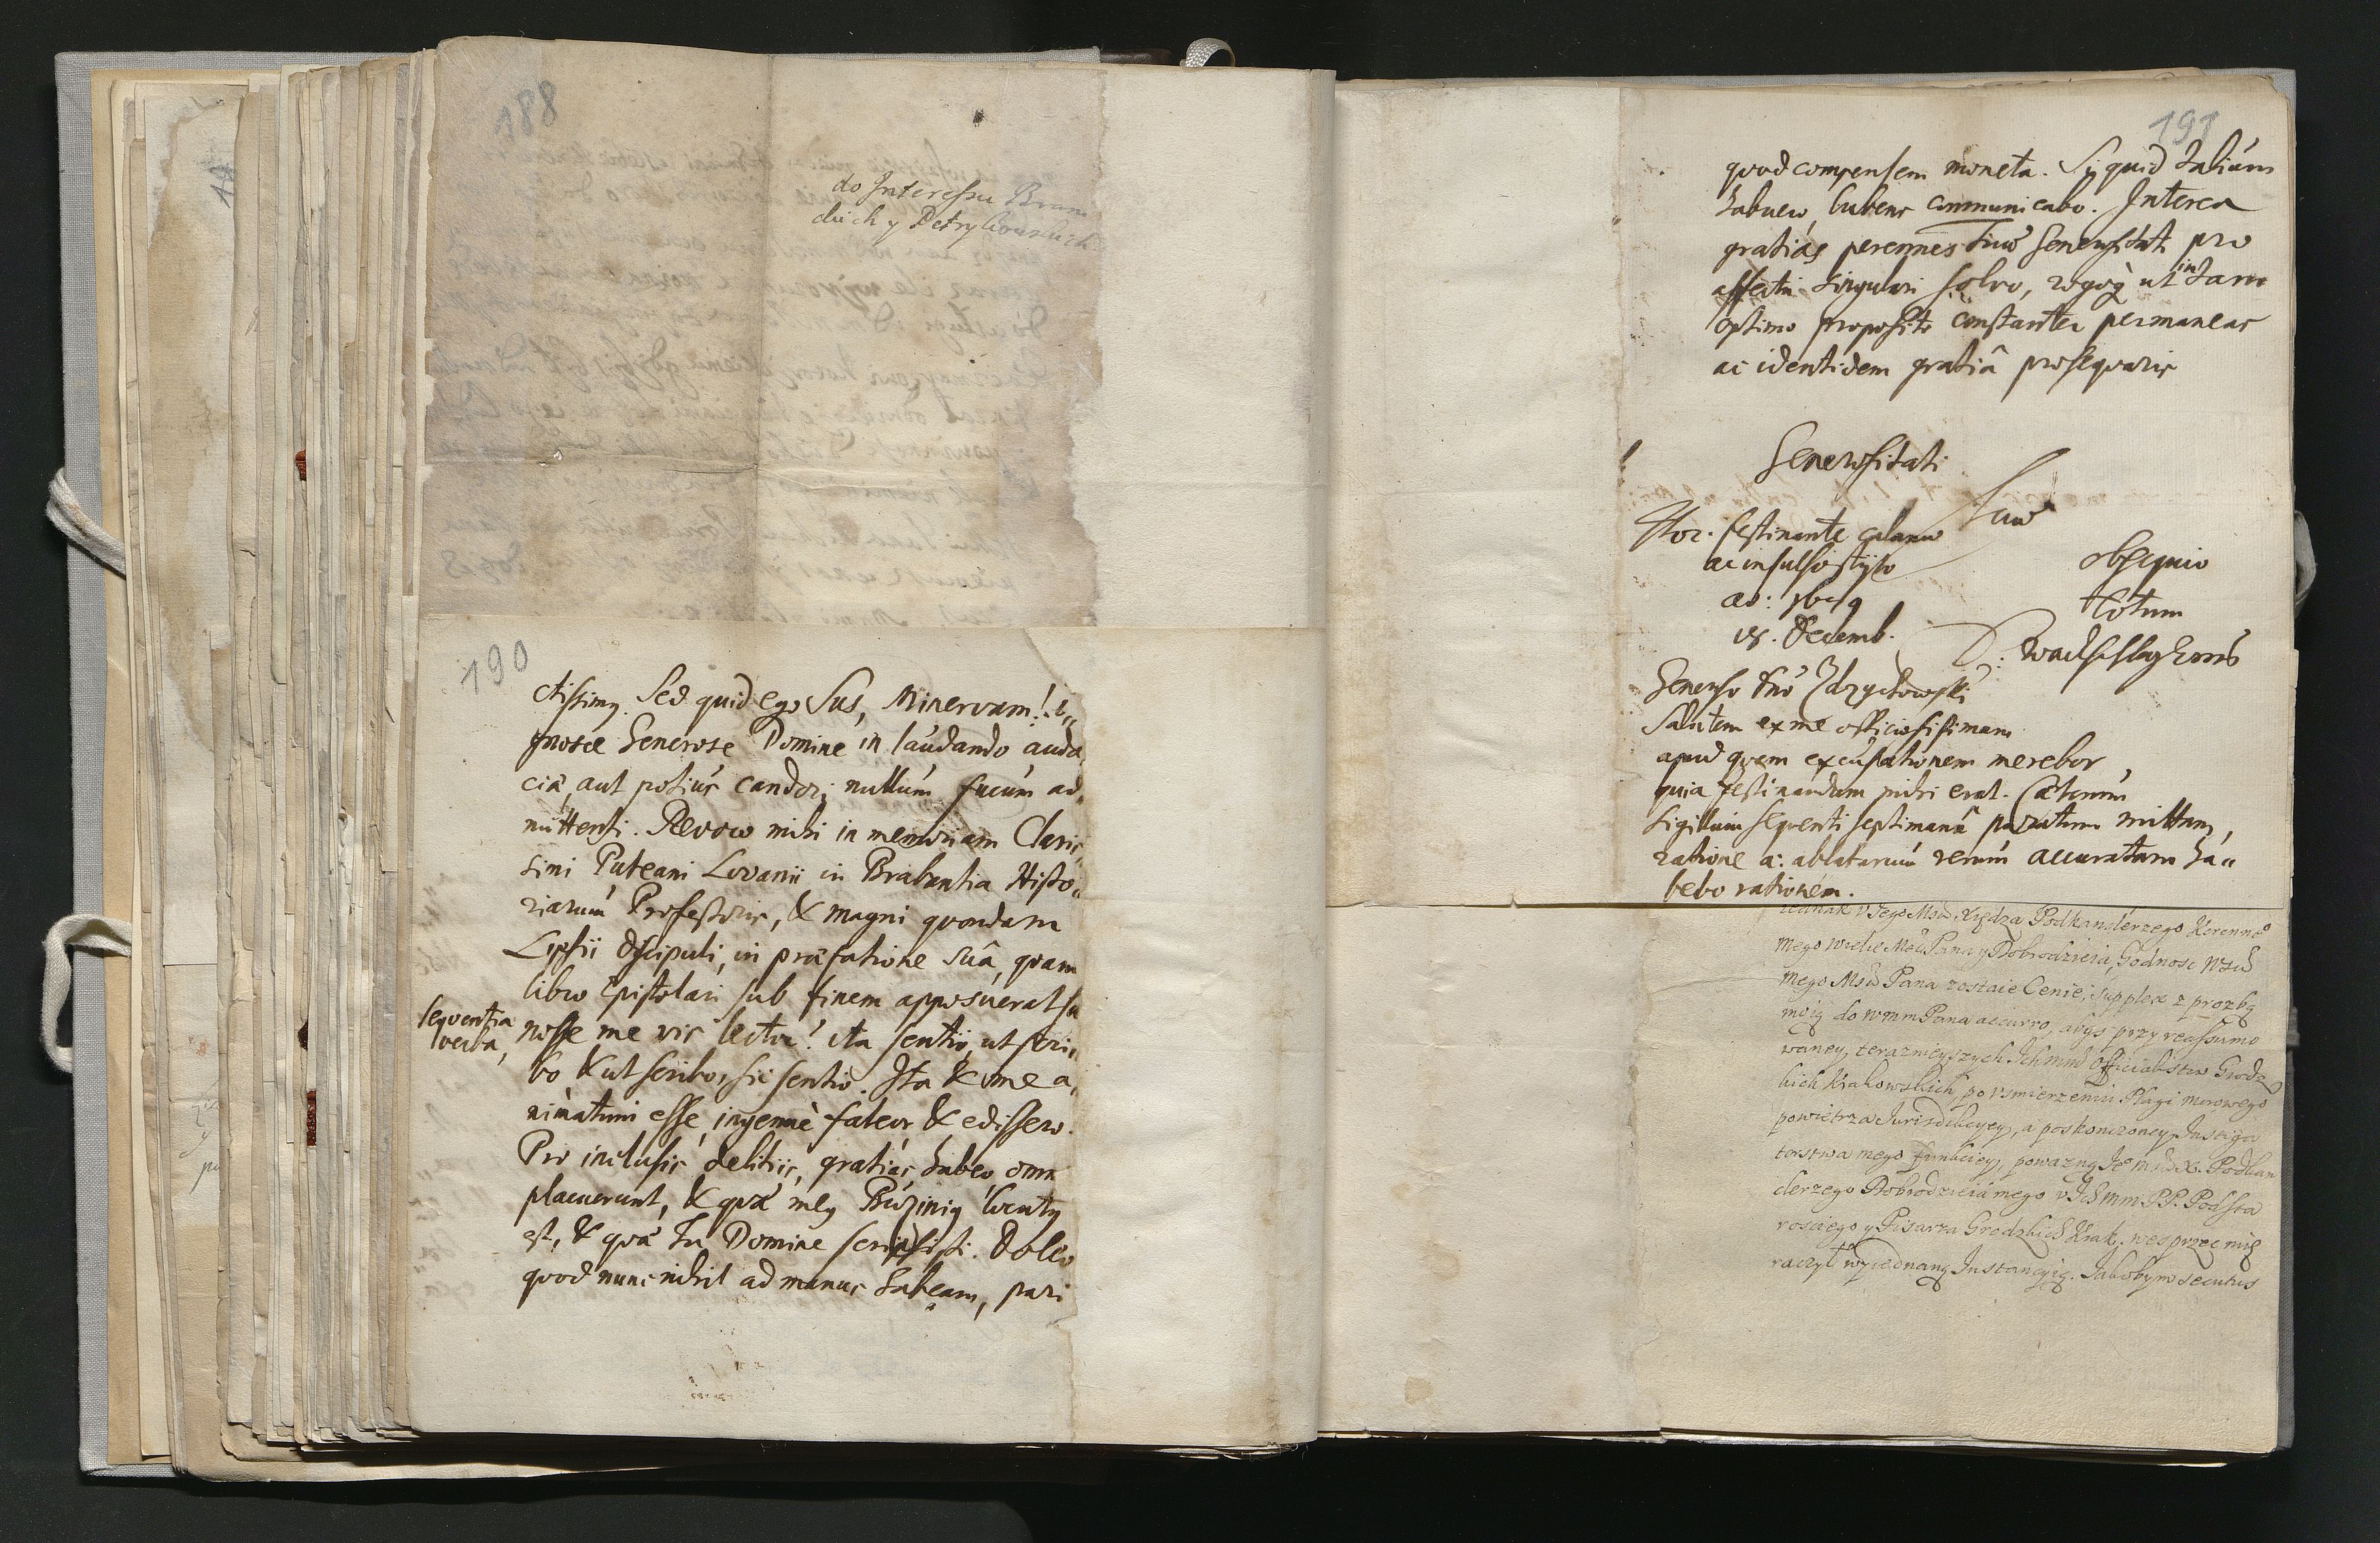 188
do Interessu Bran
dich y Petrykowskich
190
ctissimy. Sed quid ego Sus, Minervam! I„
gnosce Generose Domine in laudando auda„
ciæ, aut potius candori nullum fucum ad„
mittenti. Revoco mihi in memoriam Claris„
simi Puteani Lovanii in Brabantia Histo„
riarum Professoris, & magni quondam
Lipsii Discipuli, in præfatione suâ, quam
libro Epistolari sub finem apposuerat
sequentia
verba,
nosse me vis lector! ita sentio, ut scri„
bo, & ut scribo, sic sentio. Ita & me a„
nimatum esse, ingenuè fateor & edissero.
Pro inclusis delitiis, gratias habeo, omnia
placuerunt, & quæ locuty
est, & quæ Tu Domine scripsisti. Doleo
quod nunc nihil ad manus habeam, pari
191
quod compensem moneta. Si quid talium
habuero, lubens communicabo. Interea
gratias perennes Tuæ Generositati pro
affectu singulari solvo, rogoq ut in tam
optimo proposito constanter permaneas
ac identidem gratiâ prosequaris
Generositati
Tuæ
Hoc. festinante calamo
ac insulso stylo
obsequio
totum
Decemb.
D: Wachschlagerum
Generoso Dno Zdzychowski
Salutem ex me officiosissimam
apud quem excusationem merebor,
quia festinandum mihi erat. Cæterum
Sigillum sequenti septimanâ paratum mittam,
ratione a: ablatarum rerum accuratam ha„
bebo rationem.
iednak v Iego Msci Xiędza Podkanclerzego Koronne°
mego wielce Msci Pana y Dobrodzieia, Godnosc Wsci
mego Msci Pana zostaie Cenie, supplex z prozbą
moią do wmm Pana accurro, abys przy reassumo
waney, teraznieyszych Ichmsciow Officialistow Grodz
kich Krakowskich, po vsmierzeniu Plagi morowego
powietrza Iurisdikcyey, a poskonczoney Instiga
torstwa mego funkciey, powazną Ie° Msci X. Podkan
clerzego Dobrodzieia mego v Ichmm PP. Podsta
rosciego y Pisarza Grodzkich Krak: wesprzec mię
raczył wyiednaną Instancyią. Iakobym secutus